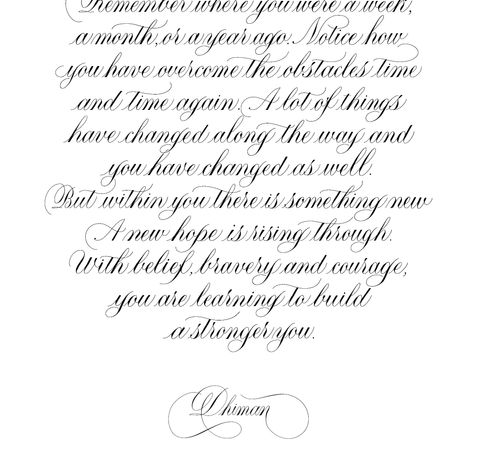 Remember where you were a week,
a month, or a year ago. Notice how
you have overcome the obstacles time
and time again. A lot of things
have changed along the way and
you have changed as well.
But within you there is something new
A new hope is rising through.
With belief, bravery and courage,
you are learning to build
a stronger you.
Dhiman